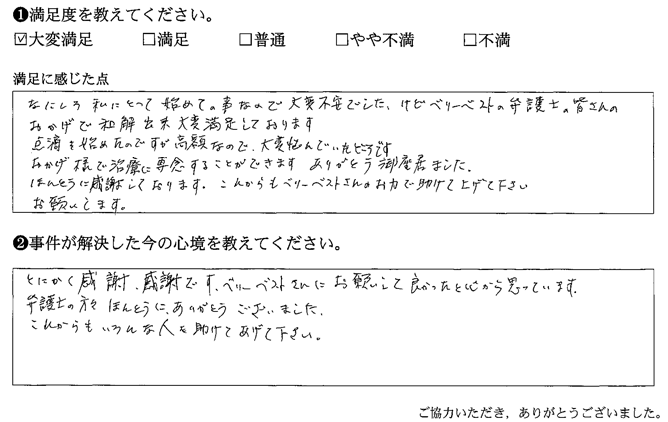 ❶満足度を教えてください。
☑大変満足 □満足 □普通 □やや不満 □不満
満足に感じた点
なにしろ 私にとって 始めての事なので 大変不安でした、けどベリーベストの弁護士の皆さんの
おかげで 和解 出来 大変満足しております
点滴を始めたのですが高額なので、大変悩んでいたところです
おかげ様で治療に専念することができます ありがとう御座居ました.
ほんとうに感謝しております. これからもベリーベストさんのお力で助けて上げて下さい
お願いします。
❷事件が解決した今の心境を教えてください。
とにかく感謝、感謝です、ベリーベストさんに お願いして 良かったと心から思っています.
弁護士の方々 ほんとうに、ありがとう ございました.
これからも いろんな人を助けてあげて下さい。
ご協力いただき，ありがとうございました。